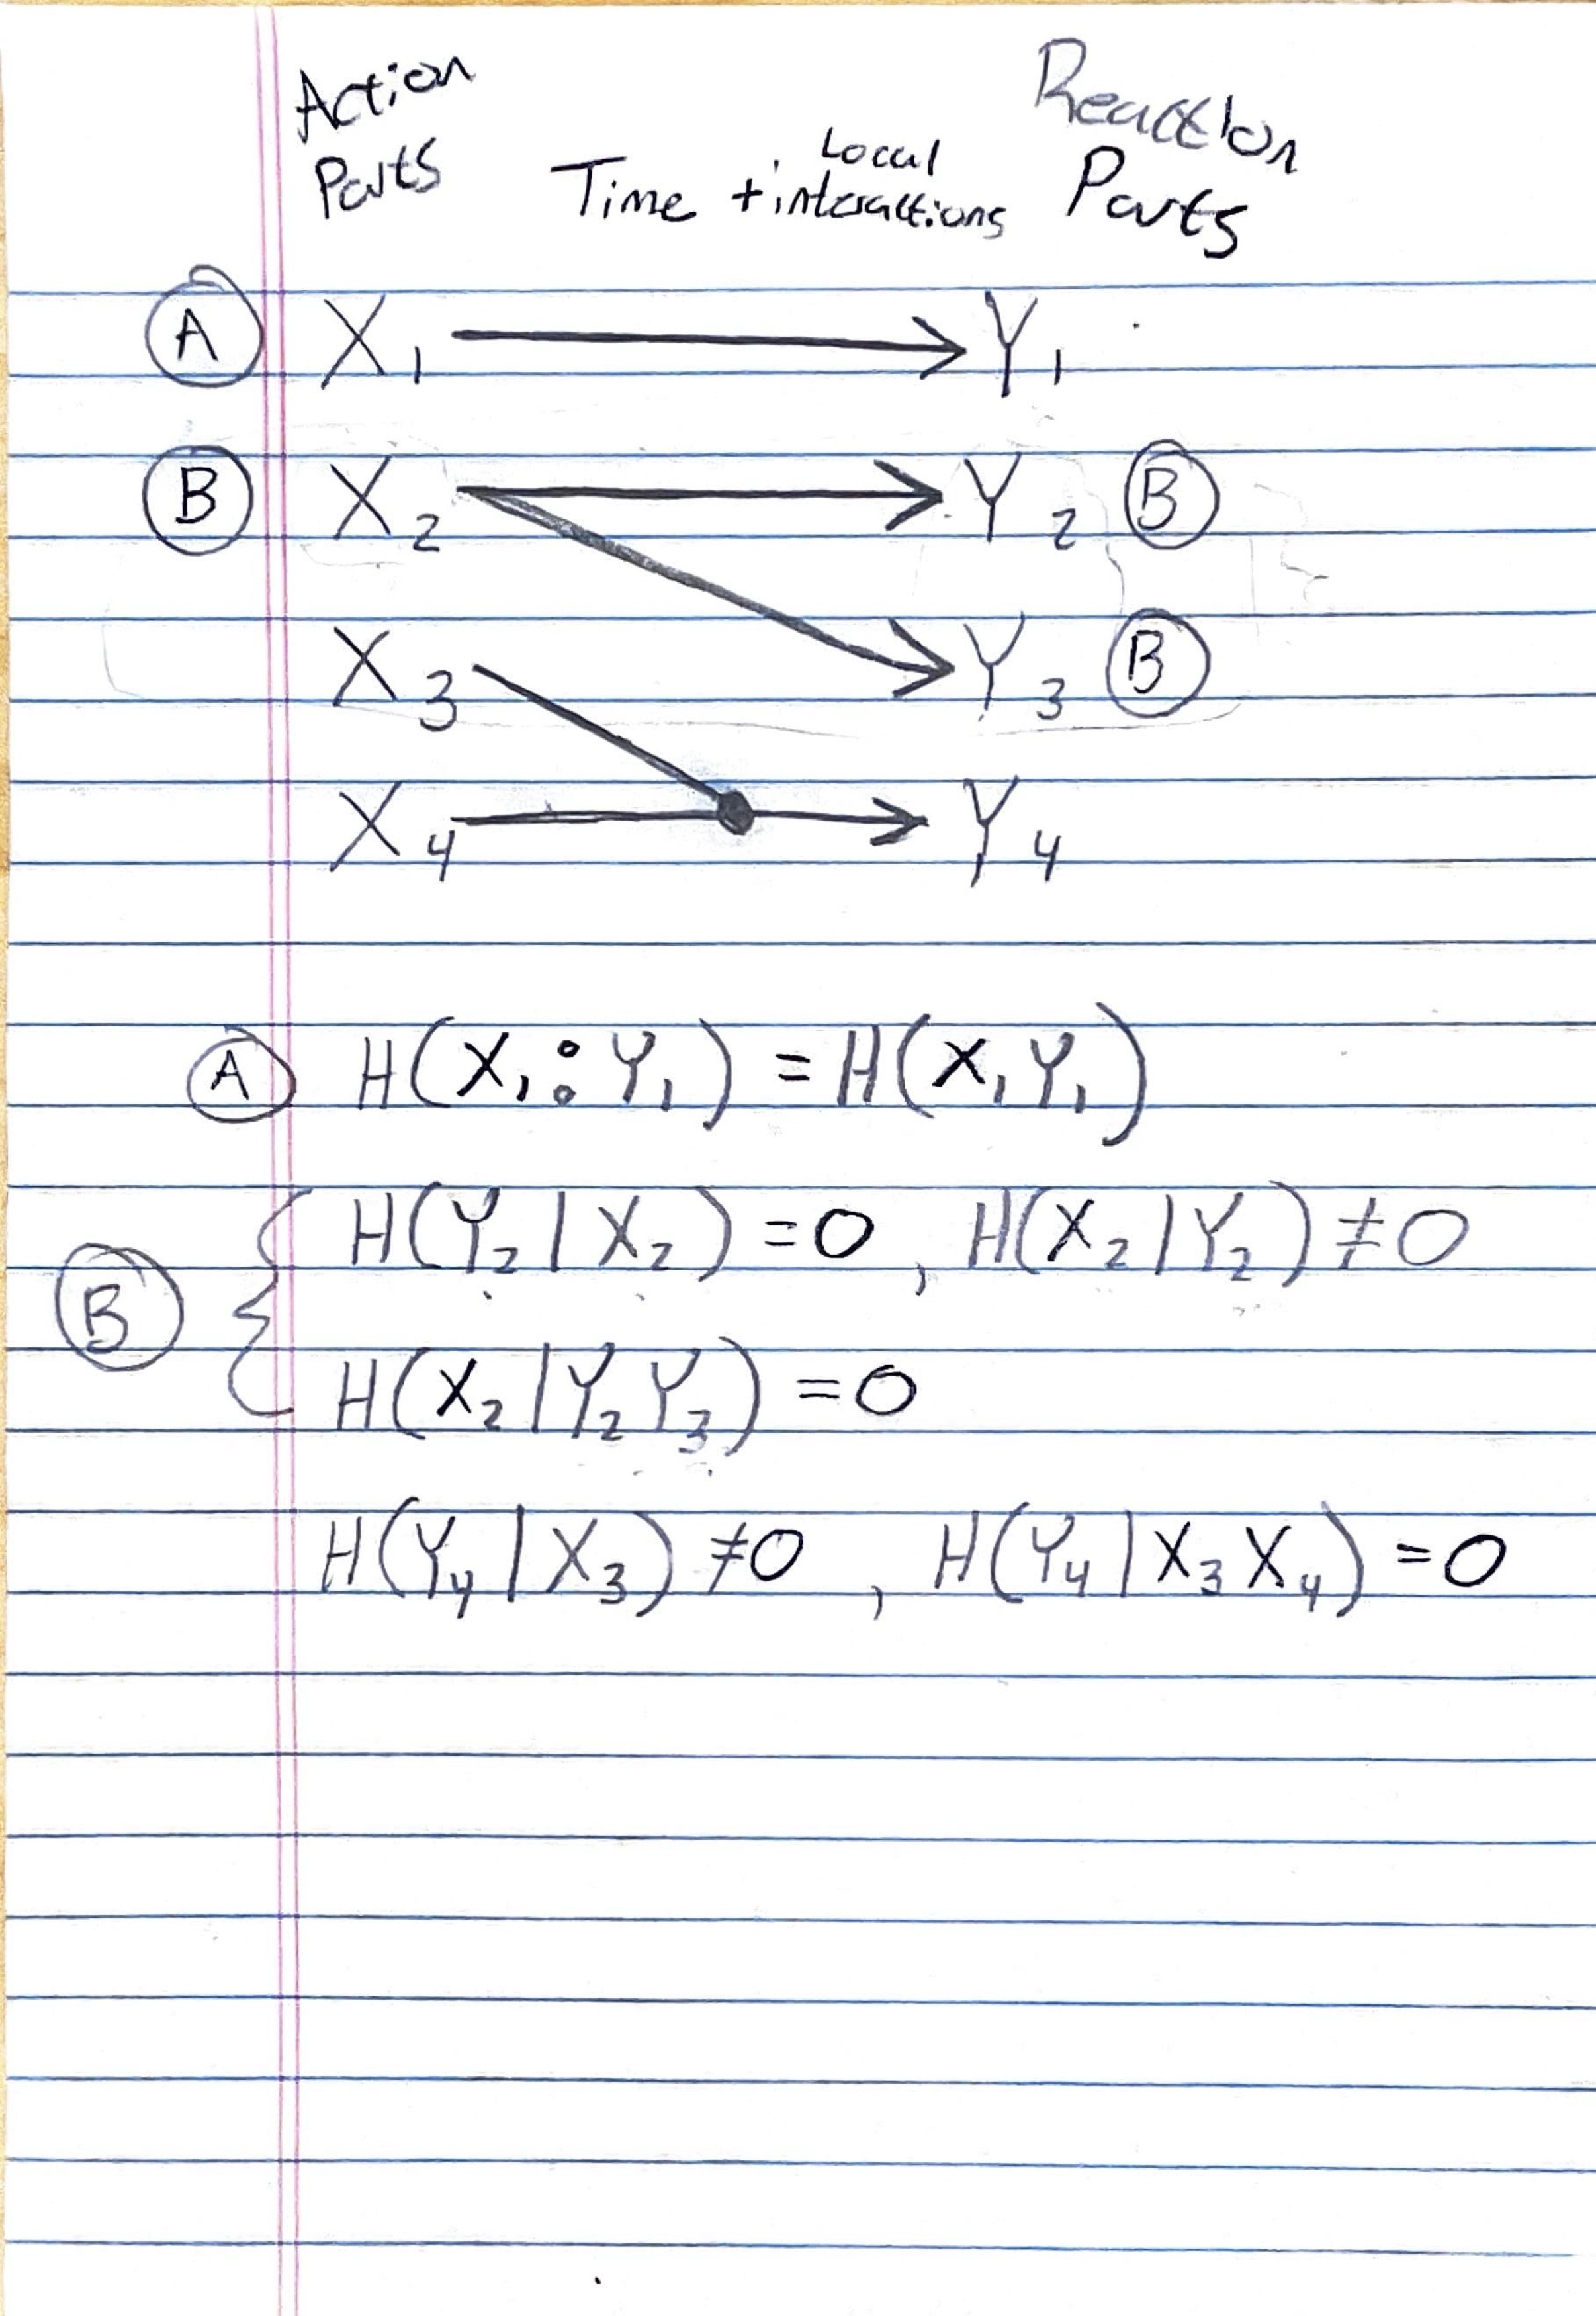 Action
Parts
Time + Local interactions
Reaction
Parts
Ⓐ X₁ ⟶ Y₁
Ⓑ X₂ ⟶ Y₂ Ⓑ
X₃ Y₃ Ⓑ
X₄ ⟶ Y₄
Ⓐ H(X₁:Y₁) = H(X₁Y₁)
Ⓑ { H(Y₂|X₂) = 0, H(X₂|Y₂) ≠ 0
H(X₂|Y₂Y₃) = 0
H(Y₄|X₃) ≠ 0, H(Y₄|X₃X₄) = 0